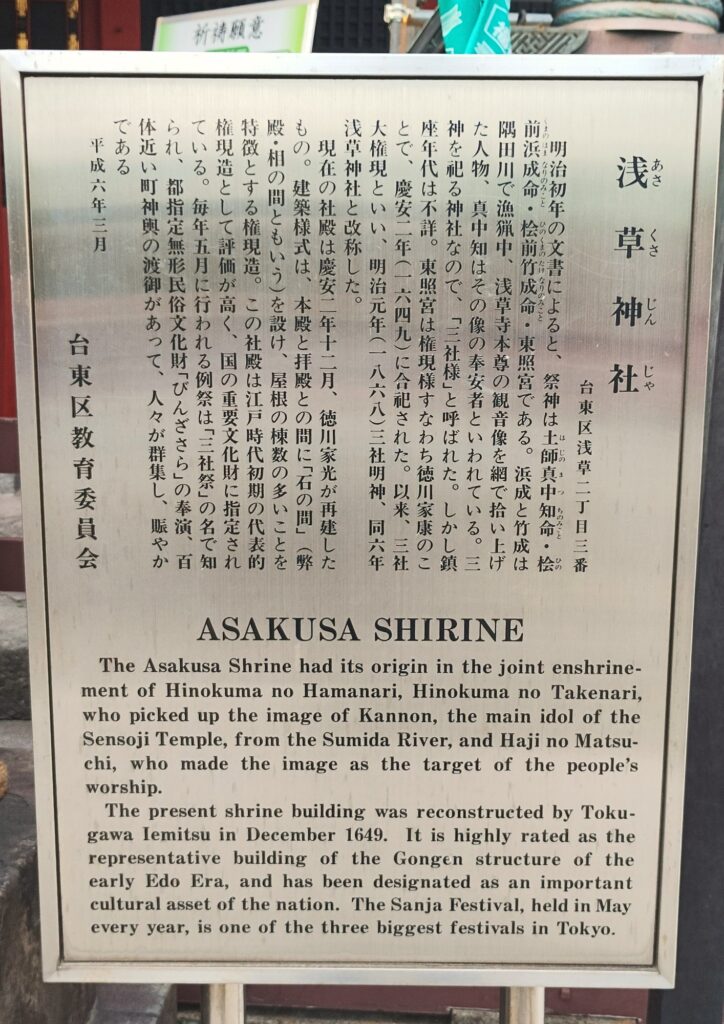 祈祷願意
浅草神社
あさくさじんじゃ
台東区浅草二丁目三番
明治初年の文書によると、祭神は土師真中知命・桧
はじのまつちのみこと ひの
前浜成命・桧前竹成命・東照宮である。浜成と竹成は
くまのはまなりのみこと ひのくまのたけなりのみこと
隅田川で漁猟中、浅草寺本尊の観音像を網で拾い上げ
た人物、真中知はその像の奉安者といわれている。三
神を祀る神社なので、「三社様」と呼ばれた。しかし鎮
座年代は不詳。東照宮は権現様すなわち徳川家康のこ
とで、慶安二年(一六四九)に合祀された。以来、三社
大権現といい、明治元年(一八六八)三社明神、同六年
浅草神社と改称した。
現在の社殿は慶安二年十二月、徳川家光が再建した
もの。建築様式は、本殿と拝殿との間に「石の間」(弊
殿・相の間ともいう)を設け、屋根の棟数の多いことを
特徴とする権現造。この社殿は江戸時代初期の代表的
権現造として評価が高く、国の重要文化財に指定され
ている。毎年五月に行われる例祭は「三社祭」の名で知
られ、都指定無形民俗文化財「びんざさら」の奉演、百
体近い町神輿の渡御があって、人々が群集し、賑やか
である
平成六年三月
台東区教育委員会
ASAKUSA SHIRINE
The Asakusa Shrine had its origin in the joint enshrine-
ment of Hinokuma no Hamanari, Hinokuma no Takenari,
who picked up the image of Kannon, the main idol of the
Sensoji Temple, from the Sumida River, and Haji no Matsu-
chi, who made the image as the target of the people's
worship.
The present shrine building was reconstructed by Toku-
gawa Iemitsu in December 1649. It is highly rated as the
representative building of the Gongen structure of the
early Edo Era, and has been designated as an important
cultural asset of the nation. The Sanja Festival, held in May
every year, is one of the three biggest festivals in Tokyo.